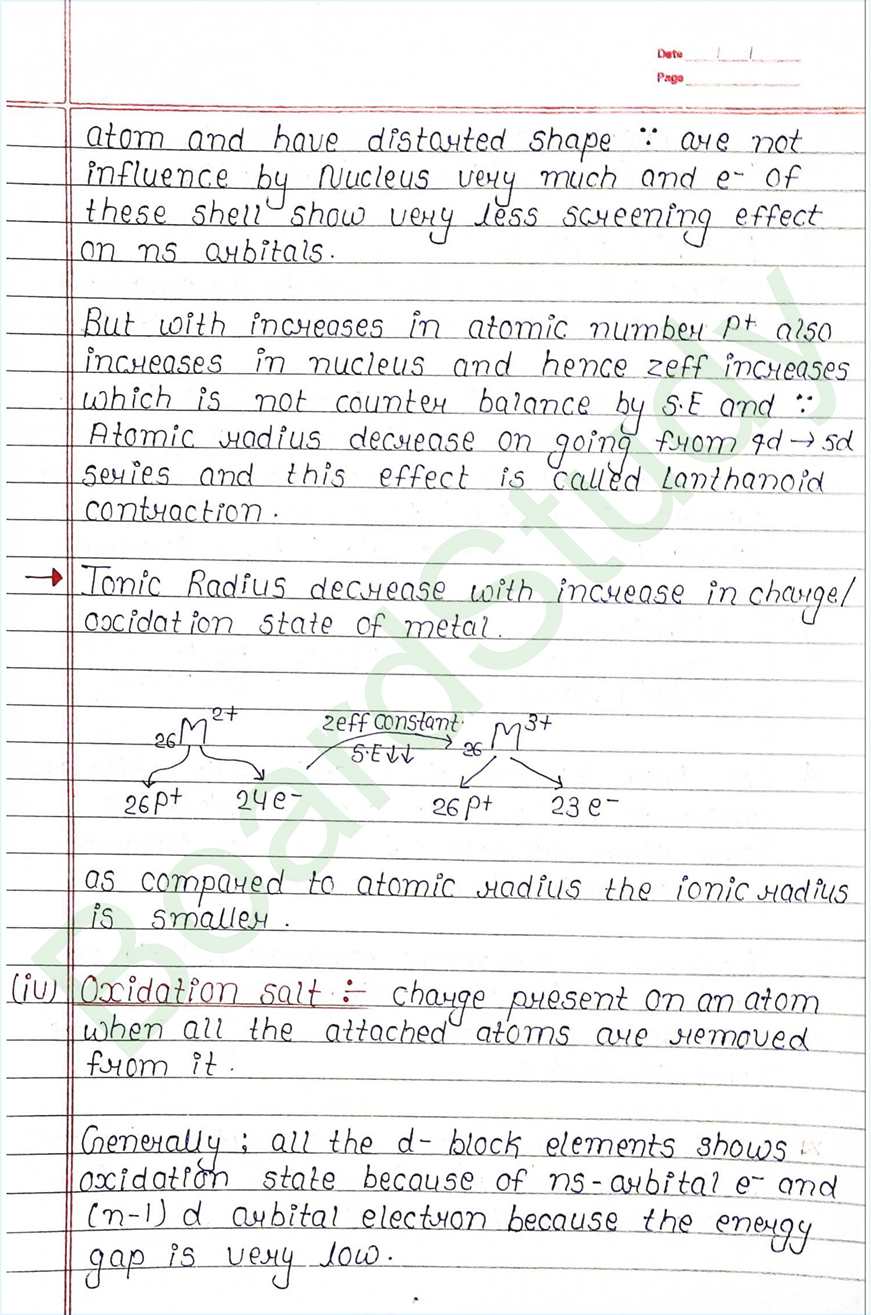 Date / /
Page
atom and have distorted shape ∵ are not
influence by Nucleus very much and e⁻ of
these shell show very less screening effect
on ns orbitals.
But with increases in atomic number P⁺ also
increases in nucleus and hence zeff increases
which is not counter balance by S.E and ∵
Atomic radius decrease on going from 4d → 5d
series and this effect is called Lanthanoid
contraction.
→ Ionic Radius decrease with increase in charge/
oxidation state of metal.
₂₆M²⁺ zeff constant. S.E↓↓ ₂₆M³⁺
26P⁺ 24e⁻ 26P⁺ 23e⁻
as compared to atomic radius the ionic radius
is smaller.
(iv) Oxidation salt :- charge present on an atom
when all the attached atoms are removed
from it.
Generally; all the d-block elements shows
oxidation state because of ns-orbital e⁻ and
(n-1)d orbital electron because the energy
gap is very low.
BoardStudy